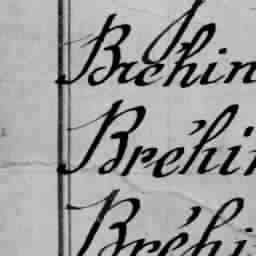 Bréhin
Bréhin
Bréhi